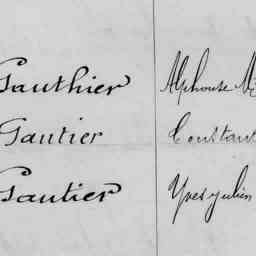 Gauthier Alphonse
Gautier Constant
Gautier Yves Julien